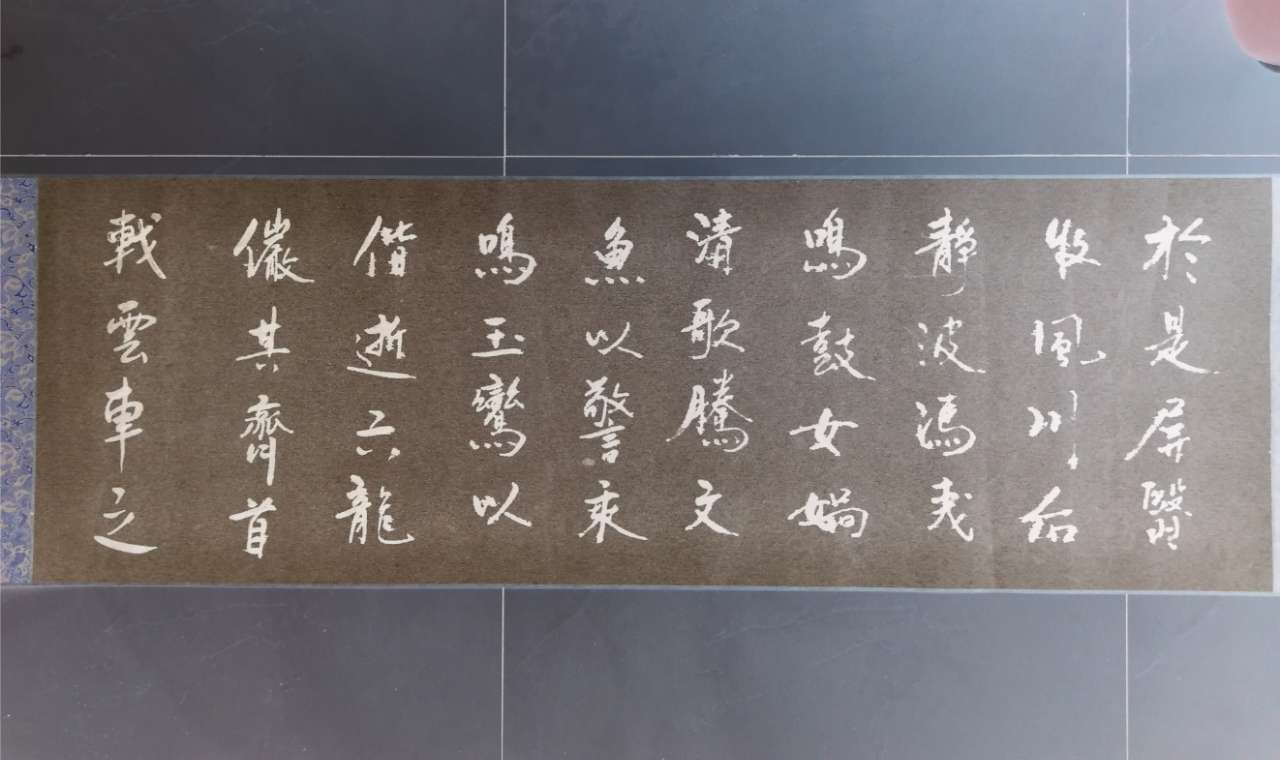 於是屏翳
收風川后
靜波馮夷
鳴鼓女媧
清歌騰文
魚以警乘
鳴玉鸞以
偕逝六龍
儼其齊首
載雲車之